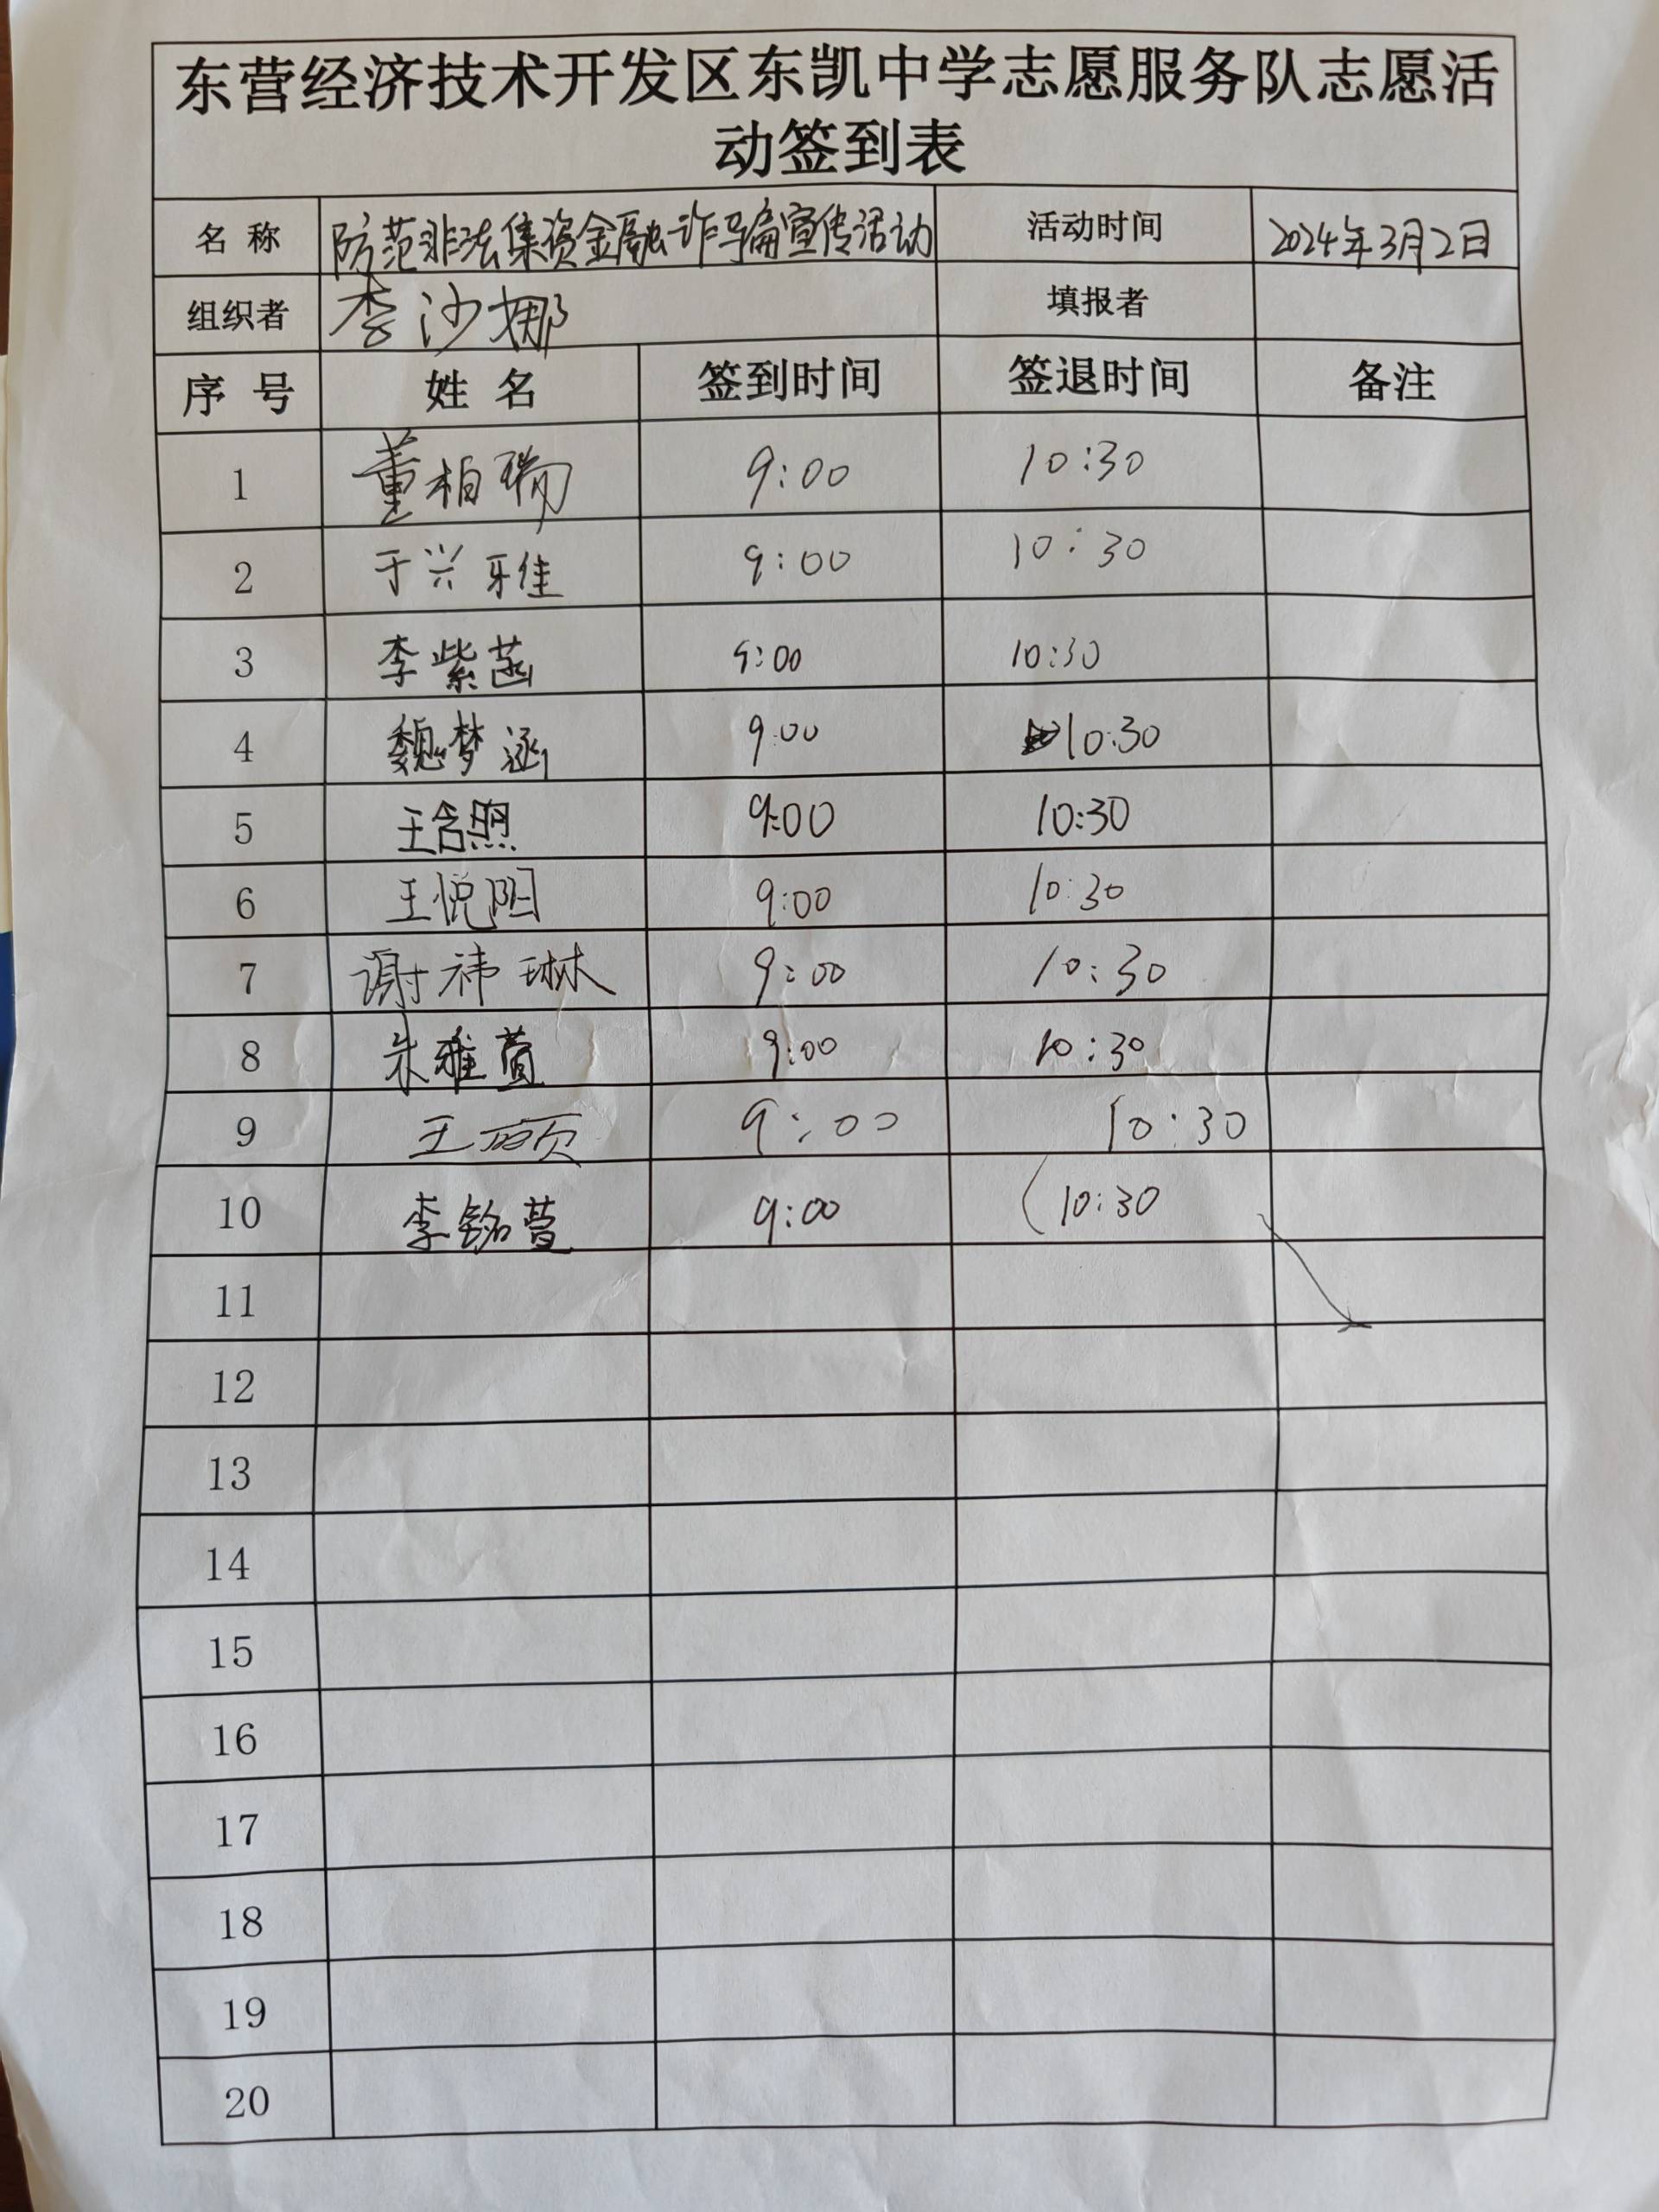 东营经济技术开发区东凯中学志愿服务队志愿活
动签到表
名 称 防范非法集资金融诈骗宣传活动 活动时间 2024年3月2日
组织者 李沙娜 填报者
序 号 姓 名 签到时间 签退时间 备注
1 董柏瑞 9:00 10:30
2 于兴雅 9:00 10:30
3 李紫菡 9:00 10:30
4 魏梦涵 9:00 10:30
5 王含照 9:00 10:30
6 王悦阳 9:00 10:30
7 谢祎琳 9:00 10:30
8 朱雅萱 9:00 10:30
9 王硕 9:00 10:30
10 李铭萱 9:00 10:30
11
12
13
14
15
16
17
18
19
20